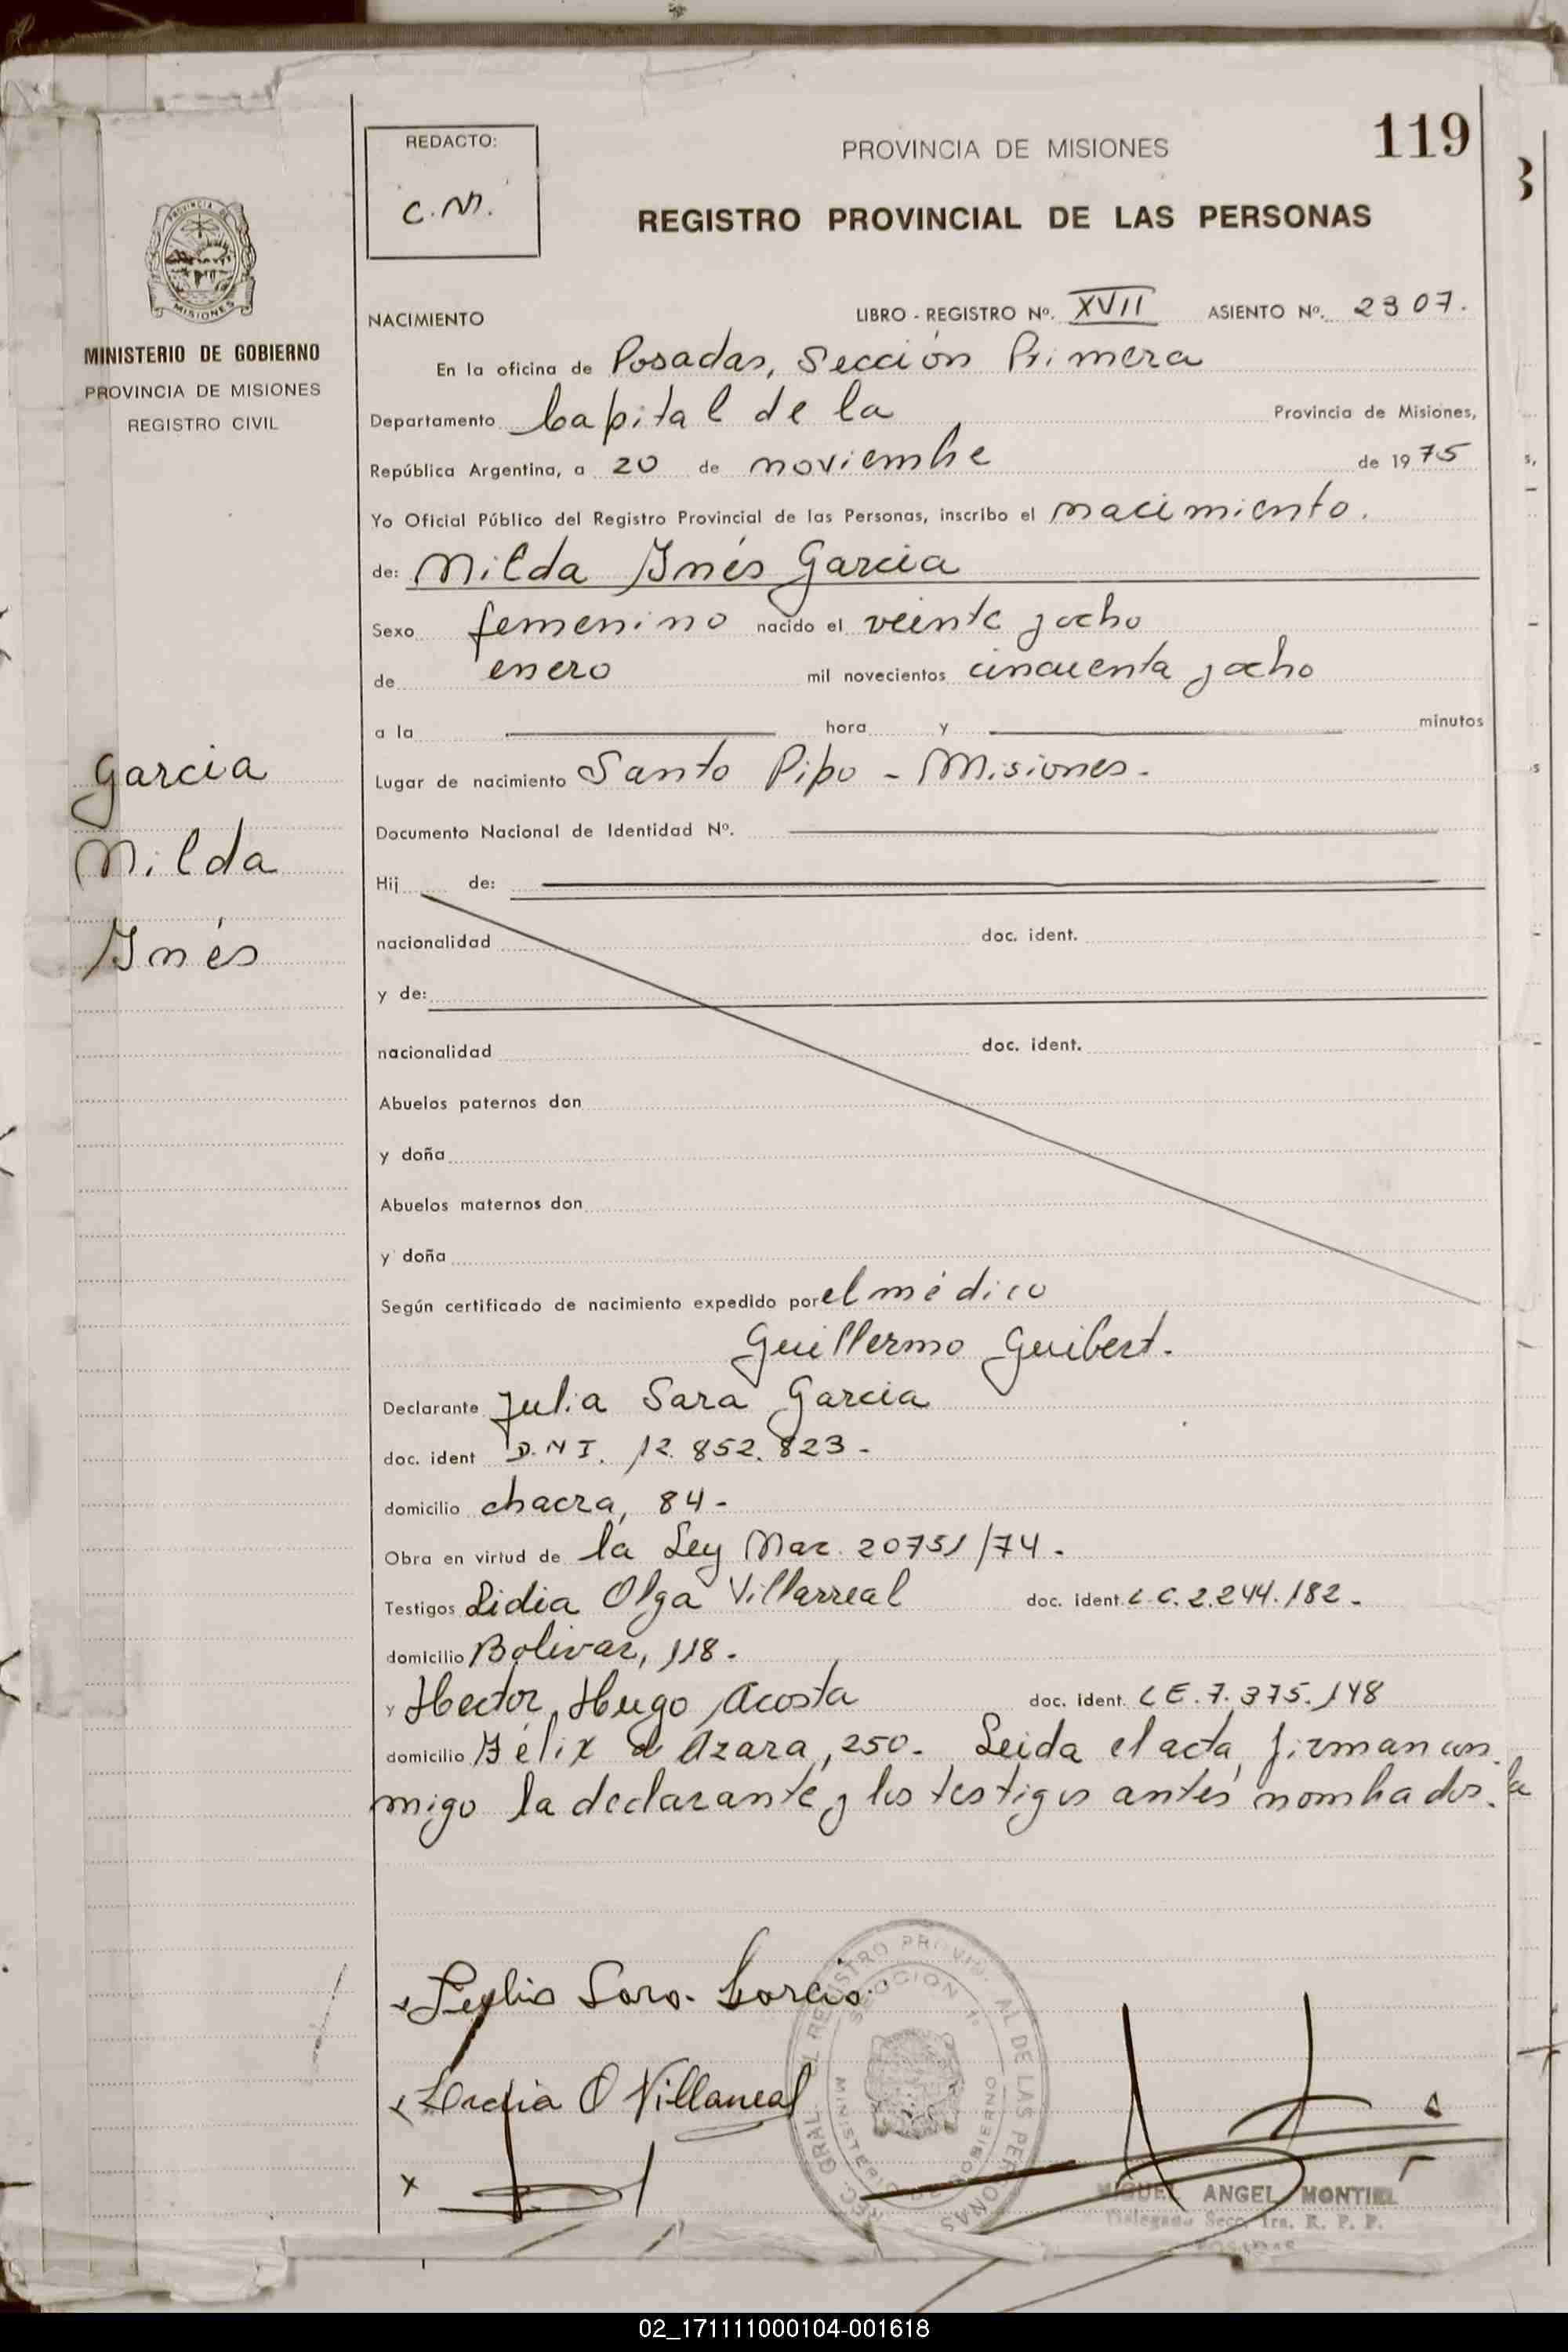 119
REDACTO:
C.M.
PROVINCIA DE MISIONES
REGISTRO PROVINCIAL DE LAS PERSONAS
PROVINCIA DE
MISIONES
MINISTERIO DE GOBIERNO
PROVINCIA DE MISIONES
REGISTRO CIVIL
NACIMIENTO LIBRO - REGISTRO Nº. XVII ASIENTO Nº. 2307.
En la oficina de Posadas, Sección Primera
Departamento Capital de la Provincia de Misiones,
República Argentina, a 20 de noviembre de 1975
Yo Oficial Público del Registro Provincial de las Personas, inscribo el nacimiento.
de: Nilda Inés Garcia
Sexo femenino nacido el veinte y ocho
de enero mil novecientos cincuenta y ocho
a la hora y minutos
Garcia
Nilda
Inés
Lugar de nacimiento Santo Pipo - Misiones.
Documento Nacional de Identidad Nº.
Hij de:
nacionalidad doc. ident.
y de:
nacionalidad doc. ident.
Abuelos paternos don
y doña
Abuelos maternos don
y doña
Según certificado de nacimiento expedido por el médico
Guillermo Guibert.
Declarante Julia Sara Garcia
doc. ident D.N.I. 12.852.823.
domicilio chacra, 84.
Obra en virtud de la Ley Nac. 20751/74.
Testigos Lidia Olga Villarreal doc. ident. L.C. 2.244.182.
domicilio Bolivar, 118.
y Hector Hugo Acosta doc. ident. L.E. 7.375.148
domicilio Félix de Azara, 250. Leida el acta, firman con
migo la declarante y los testigos antes nombrados.
Julia Sara Garcia
Lidia O Villarreal
REGISTRO PROVINCIAL DE LAS PERSONAS
SECCION 1ª
MINISTERIO DE GOBIERNO
MIGUEL ANGEL MONTIEL
Delegado Secc. 1ra. R. P. P.
POSADAS
02_171111000104-001618